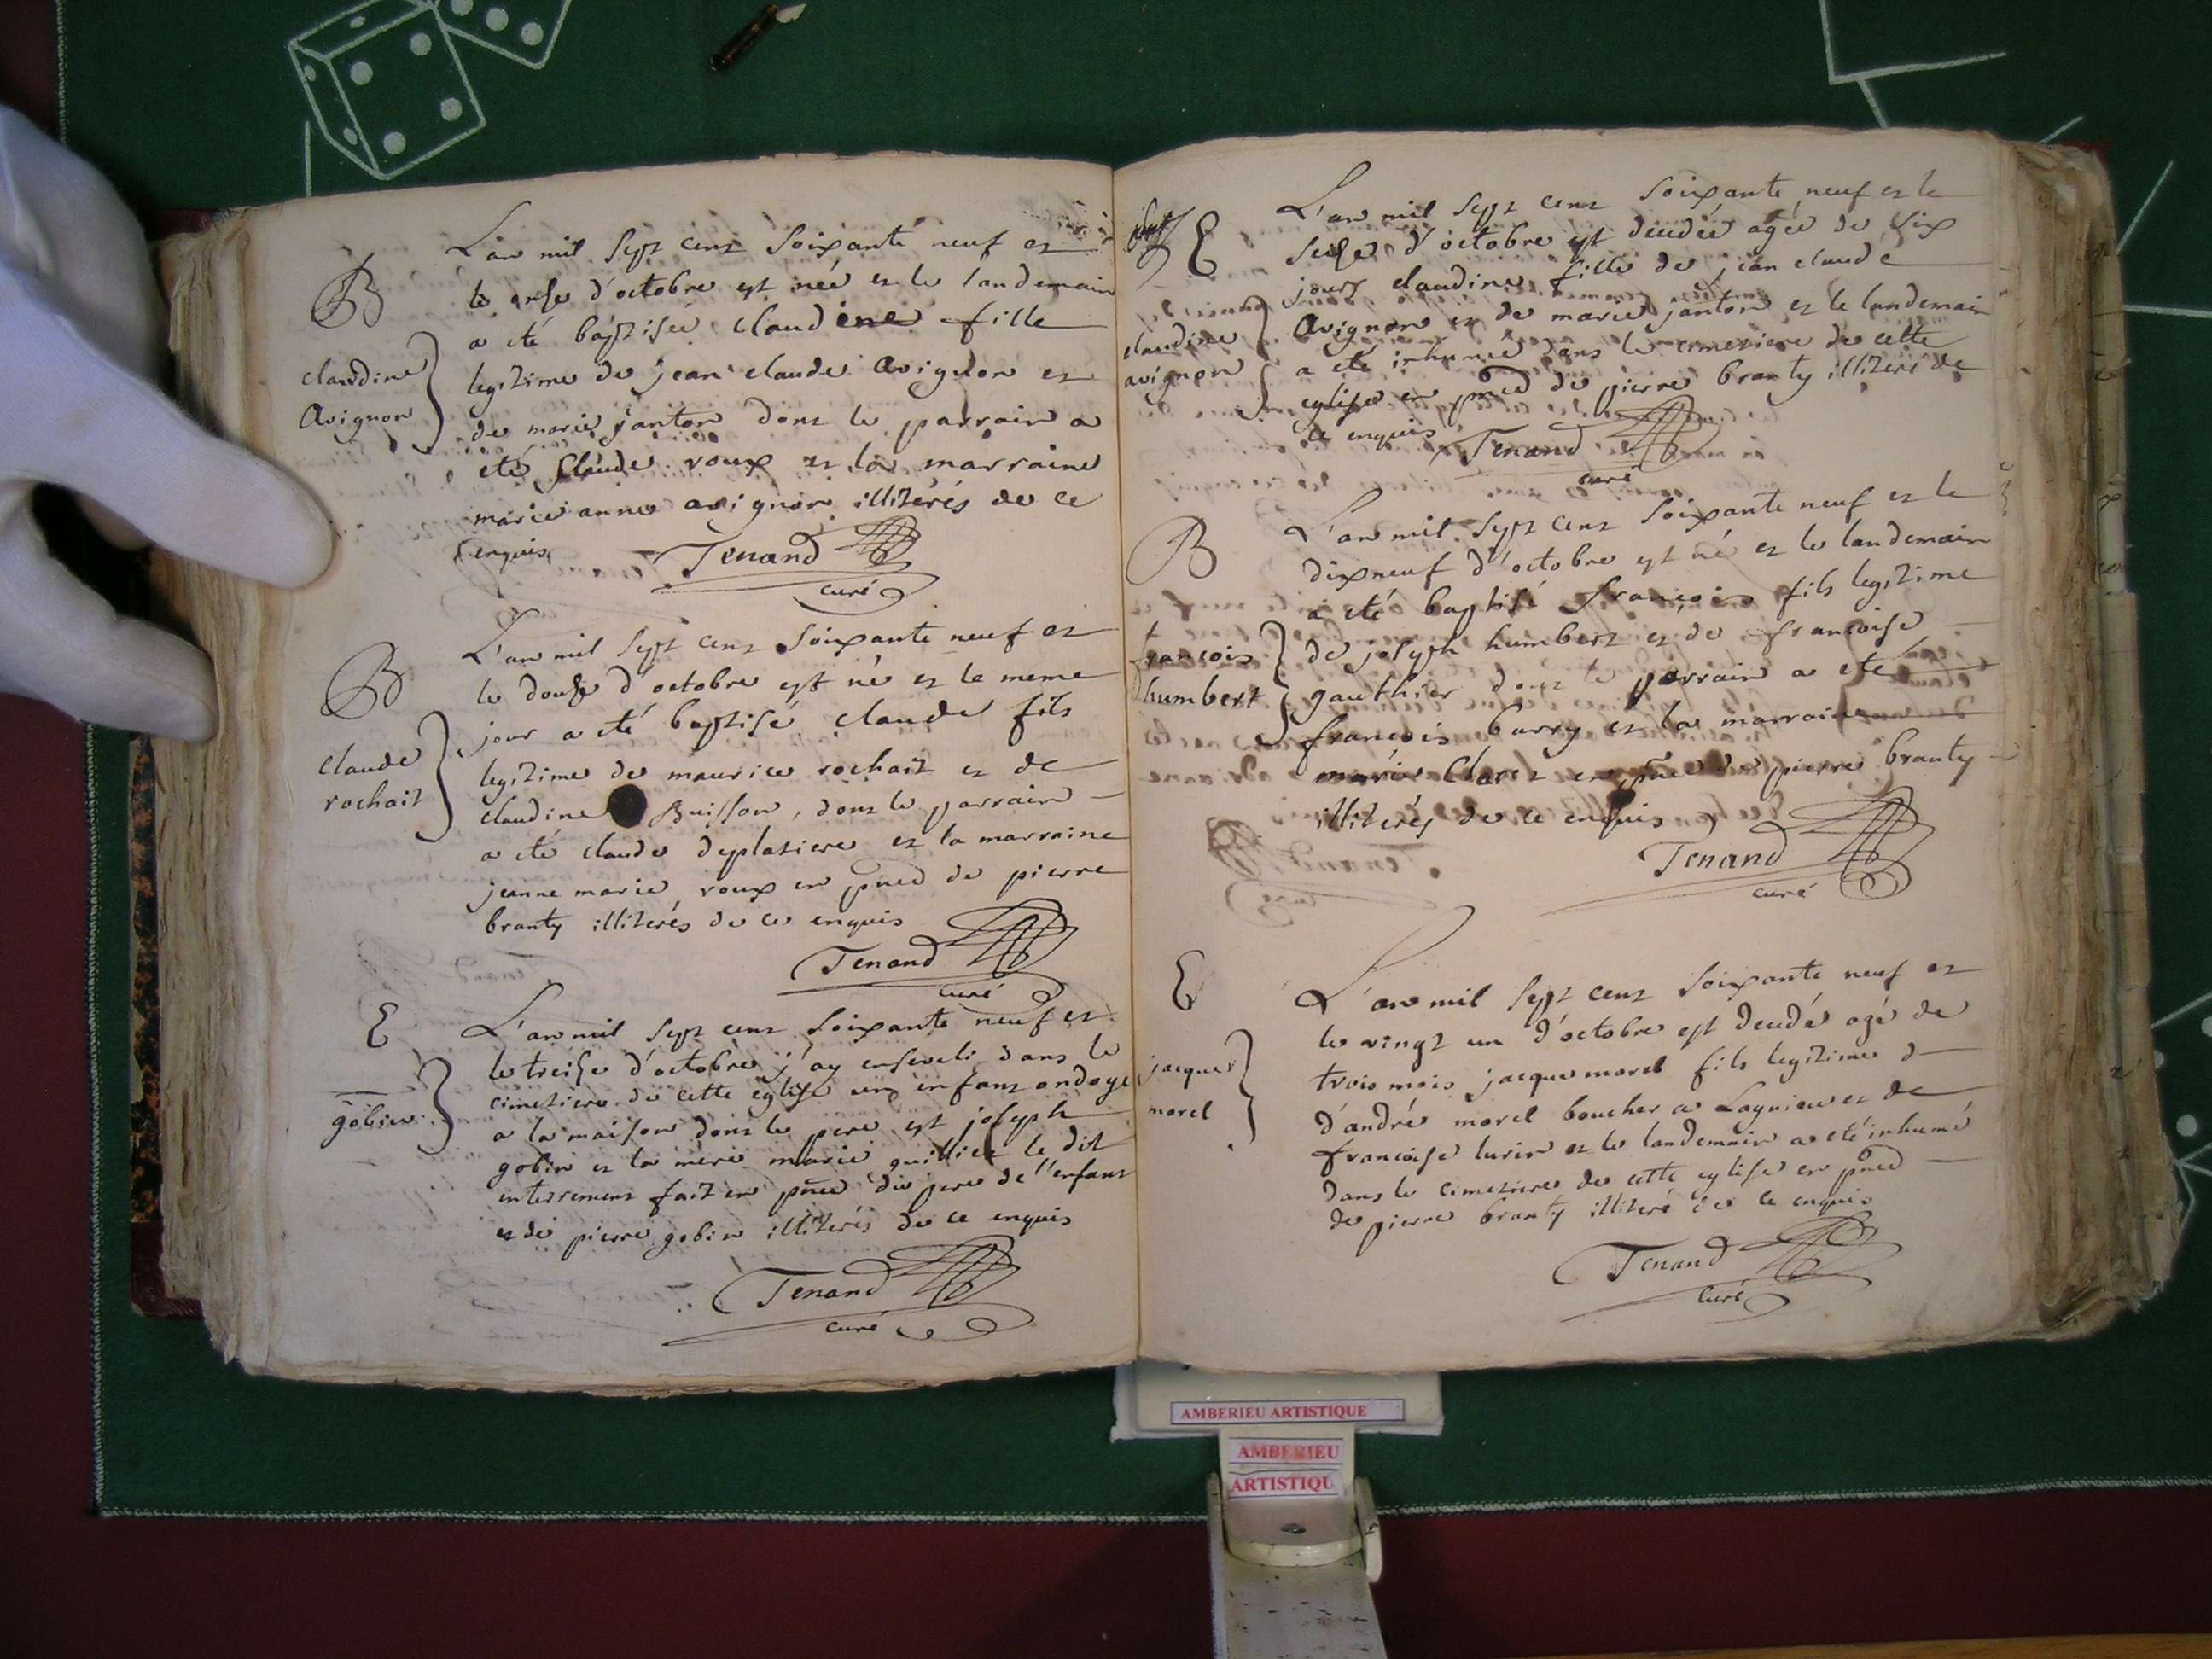 B
claudine
avignon
L'an mil sept cent soixante neuf et
le onse d'octobre est née et le landemain
a eté baptisée claudine fille
legitime de jean claude avignon et
de marie janton dont le parrain a
eté claude roux et la marraine
marie anne avignon illiterés de ce
enquis
Tenand
curé
B
claude
rochait
L'an mil sept cent soixante neuf et
le douse d'octobre est né et le meme
jour a eté baptisé claude fils
legitime de maurice rochait et de
claudine Buisson, dont le parrain
a eté claude deplatiere et la marraine
jeanne marie roux en pnce de pierre
branty illiterés de ce enquis
Tenand
curé
E
gobin
L'an mil sept cent soixante neuf et
le treise d'octobre j'ay enseveli dans le
cimetiere de cette eglise un enfant ondoyé
a la maison dont le pere est joseph
gobin et la mere marie guillier le dit
interrement fait en pnce du pere de l'enfant
et de pierre gobin illiterés de ce enquis
Tenand
curé
E
claudine
avignon
L'an mil sept cent soixante neuf et le
seise d'octobre est decedée agée de six
jours claudine fille de jean claude
avignon et de marie janton et le landemain
a eté inhumée dans le cimetiere de cette
eglise en pnce de pierre branty illiteré de
ce enquis
Tenand
curé
B
francois
humbert
L'an mil sept cent soixante neuf et le
dixneuf d'octobre est né et le landemain
a eté baptisé francois fils legitime
de joseph humbert et de francoise
gauthier dont le parrain a eté
francois barry et la marraine
marie claret en pnce de pierre branty
illiterés de ce enquis
Tenand
curé
E
jacque
morel
L'an mil sept cent soixante neuf et
le vingt un d'octobre est decedé agé de
trois mois jacque morel fils legitime
d'andré morel boucher a Lagnieu et de
francoise lurin et le landemain a eté inhumé
dans le cimetiere de cette eglise en pnce
de pierre branty illiteré de ce enquis
Tenand
curé
AMBERIEU ARTISTIQUE
AMBERIEU
ARTISTIQU